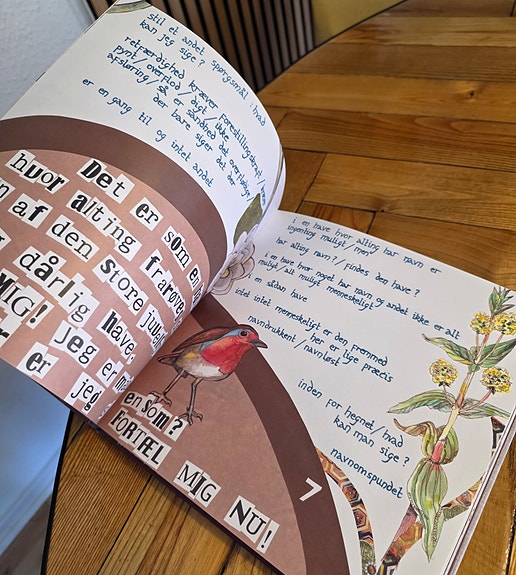 stil et andet spørgsmål: hvad
kan jeg sige?
retfærdighed kræver forestillingskraft/
pynt/overflod/digt/ikke
afsløring/så er sandhed det overflødige/
der bare siger det der
er en gang til og intet andet
Det er som en
hvor alting fra
af den store
dårlig have
MIG! jeg er
er jeg
ensom?
FORTÆL
MIG NU!
7
i en have hvor alting har navn er
ingenting muligt/men
har alting navn?/findes den have?
i en have hvor noget har navn og andet ikke er alt
muligt/alt muligt menneskeligt
en sådan have
intet intet menneskeligt er den fremmed
her er lige præcis
navndrukkent/navnløst
inden for hegnet/hvad
kan man sige?
navnomspundet